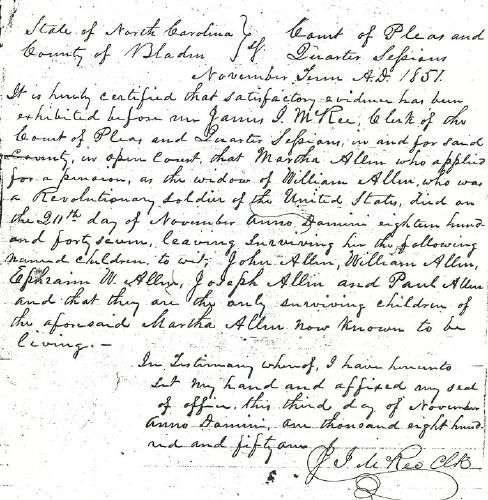 State of North Carolina } Court of Pleas and
County of Bladen } ss Quarter Sessions
November Term A.D. 1851.
It is hereby certified that satisfactory evidence has been
exhibited before me James I. McKee, Clerk of the
Court of Pleas and Quarter Sessions, in and for said
County, in open Court, that Martha Allen who applied
for a pension, as the widow of William Allen, who was
a Revolutionary soldier of the United States, died on
the 20th day of November Anno Domini eighteen hund-
and forty seven, leaving surviving her the following
named children to wit; John Allen, William Allen,
Ephraim W. Allen, Joseph Allen and Paul Allen
and that they are the only surviving children of
the aforesaid Martha Allen now known to be
living. —
In Testimony whereof, I have hereunto
set my hand and affixed my seal
of office, this third day of November
Anno Domini, one thousand eight hund-
red and fifty one
J I McKee Clk